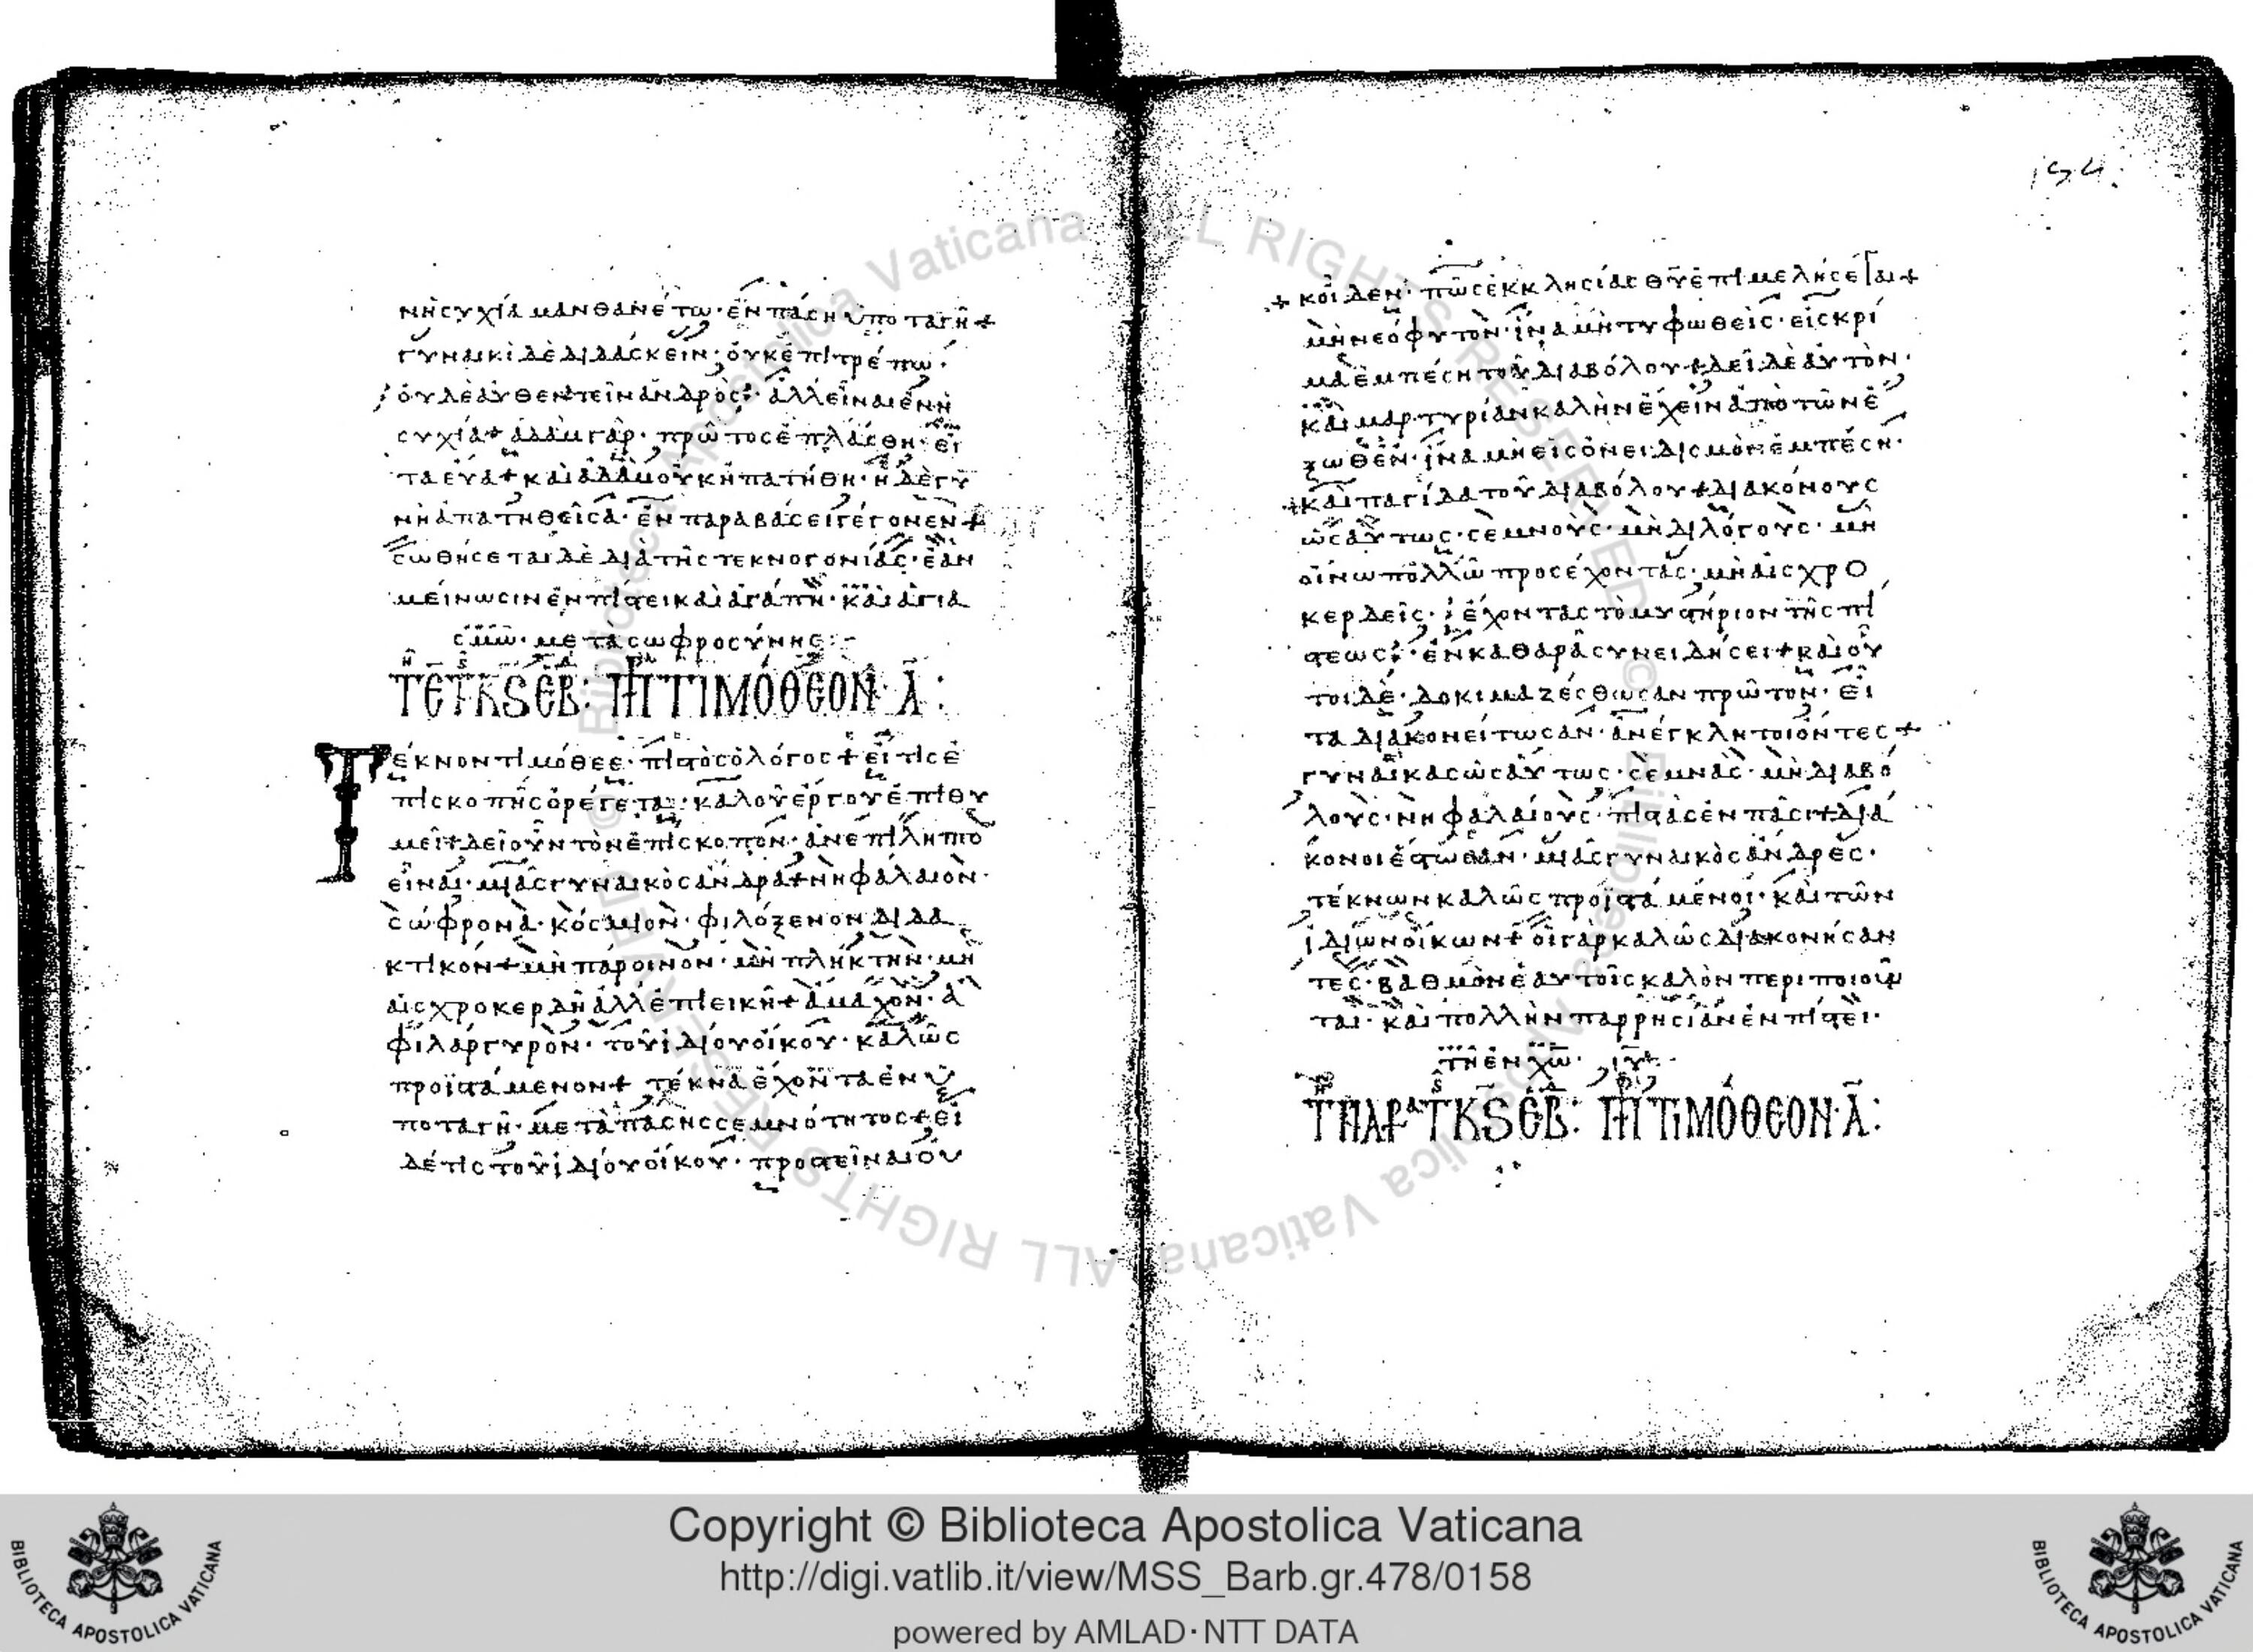 νησυχία μανθανέτω· ἐν πάσῃ ὑποταγῆ +
γυναικὶ δὲ διδάσκειν· οὐκ ἐπιτρέπω·
οὐδὲ αὐθεντεῖν ἀνδρὸς· ἀλλ εἶναι ἐν ἡ
συχία + ἀδὰμ γὰρ· πρῶτος ἐπλάσθη· εἶ
τα εὕα + καὶ ἀδὰμ οὐκ ἠπατήθη· ἡ δὲ γυ
νὴ ἀπατηθεῖσα· ἐν παραβάσει γέγονεν +
σωθήσεται δὲ διὰ τῆς τεκνογονίας· ἐὰν
μείνωσιν ἐν πίστει καὶ ἀγάπη· καὶ ἁγια
σμῶ· μετὰ σωφροσύνης :-
ΠΡ ΤΙΜΌΘΕΟΝ· Α :
Τέκνον τιμόθεε· πιστὸς ὁ λόγος + εἴ τις ἐ
πισκοπῆς ὀρέγεται· καλοῦ ἔργου ἐπιθυ
μεῖ + δεῖ οὖν τὸν ἐπίσκοπον· ἀνεπίληπτο
εἶναι· μιᾶς γυναικὸς ἄνδρα + νηφάλαιον·
σώφρονα· κόσμιον· φιλόξενον διδα
κτικόν + μὴ πάροινον· μὴ πλήκτην· μὴ
αἰσχροκερδῆ ἀλλ ἐπιεικῆ + ἄμαχον· ἀ
φιλάργυρον· τοῦ ἰδίου οἴκου· καλῶς
προϊστάμενον + τέκνα ἔχοντα ἐν ὑ
ποταγῆ· μετὰ πάσης σεμνότητος + εἰ
δέ τις τοῦ ἰδίου οἴκου· προστεῖναι οὐ
+ κ οἶδεν· πῶς ἐκκλησίας θυ ἐπιμελήσεται +
μὴ νεόφυτον· ἵνα μὴ τυφωθεὶς· εἰς κρί
μα ἐμπέση τοῦ διαβόλου + δεῖ δὲ αὐτὸν·
καὶ μαρτυρίαν καλὴν ἔχειν ἀπὸ τῶν ἔ
ξωθεν· ἵνα μὴ εἰς ὀνειδισμὸν ἐμπέση·
+ καὶ παγίδα τοῦ διαβόλου + διακόνους
ὡσαύτως· σεμνοὺς· μὴ διλόγους· μὴ
οἴνω πολλῶ προσέχοντας· μὴ αἰσχρο
κερδεῖς· ἔχοντας τὸ μυστήριον τῆς πί
στεως· ἐν καθαρᾶ συνειδήσει + καὶ οὗ
τοι δὲ· δοκιμαζέσθωσαν πρῶτον· εἶ
τα διακονείτωσαν· ἀνέγκλητοι ὄντες +
γυναῖκας ὡσαύτως· σεμνὰς· μὴ διαβό
λους· νηφαλαίους· πιστὰς ἐν πᾶσι + διά
κονοι ἔστωσαν· μιᾶς γυναικὸς ἄνδρες·
τέκνων καλῶς προϊστάμενοι· καὶ τῶν
ἰδίων οἴκων + οἱ γὰρ καλῶς διακονήσαν
τες· βαθμὸν ἑαυτοῖς καλὸν περιποιοῦν
ται· καὶ πολλὴν παρρησίαν ἐν πίστει·
τῆ ἐν χω· ιυ :-
ΠΡ ΤΙΜΌΘΕΟΝ· Α :
Copyright © Biblioteca Apostolica Vaticana
http://digi.vatlib.it/view/MSS_Barb.gr.478/0158
powered by AMLAD·NTT DATA
BIBLIOTECA APOSTOLICA VATICANA
BIBLIOTECA APOSTOLICA VATICANA